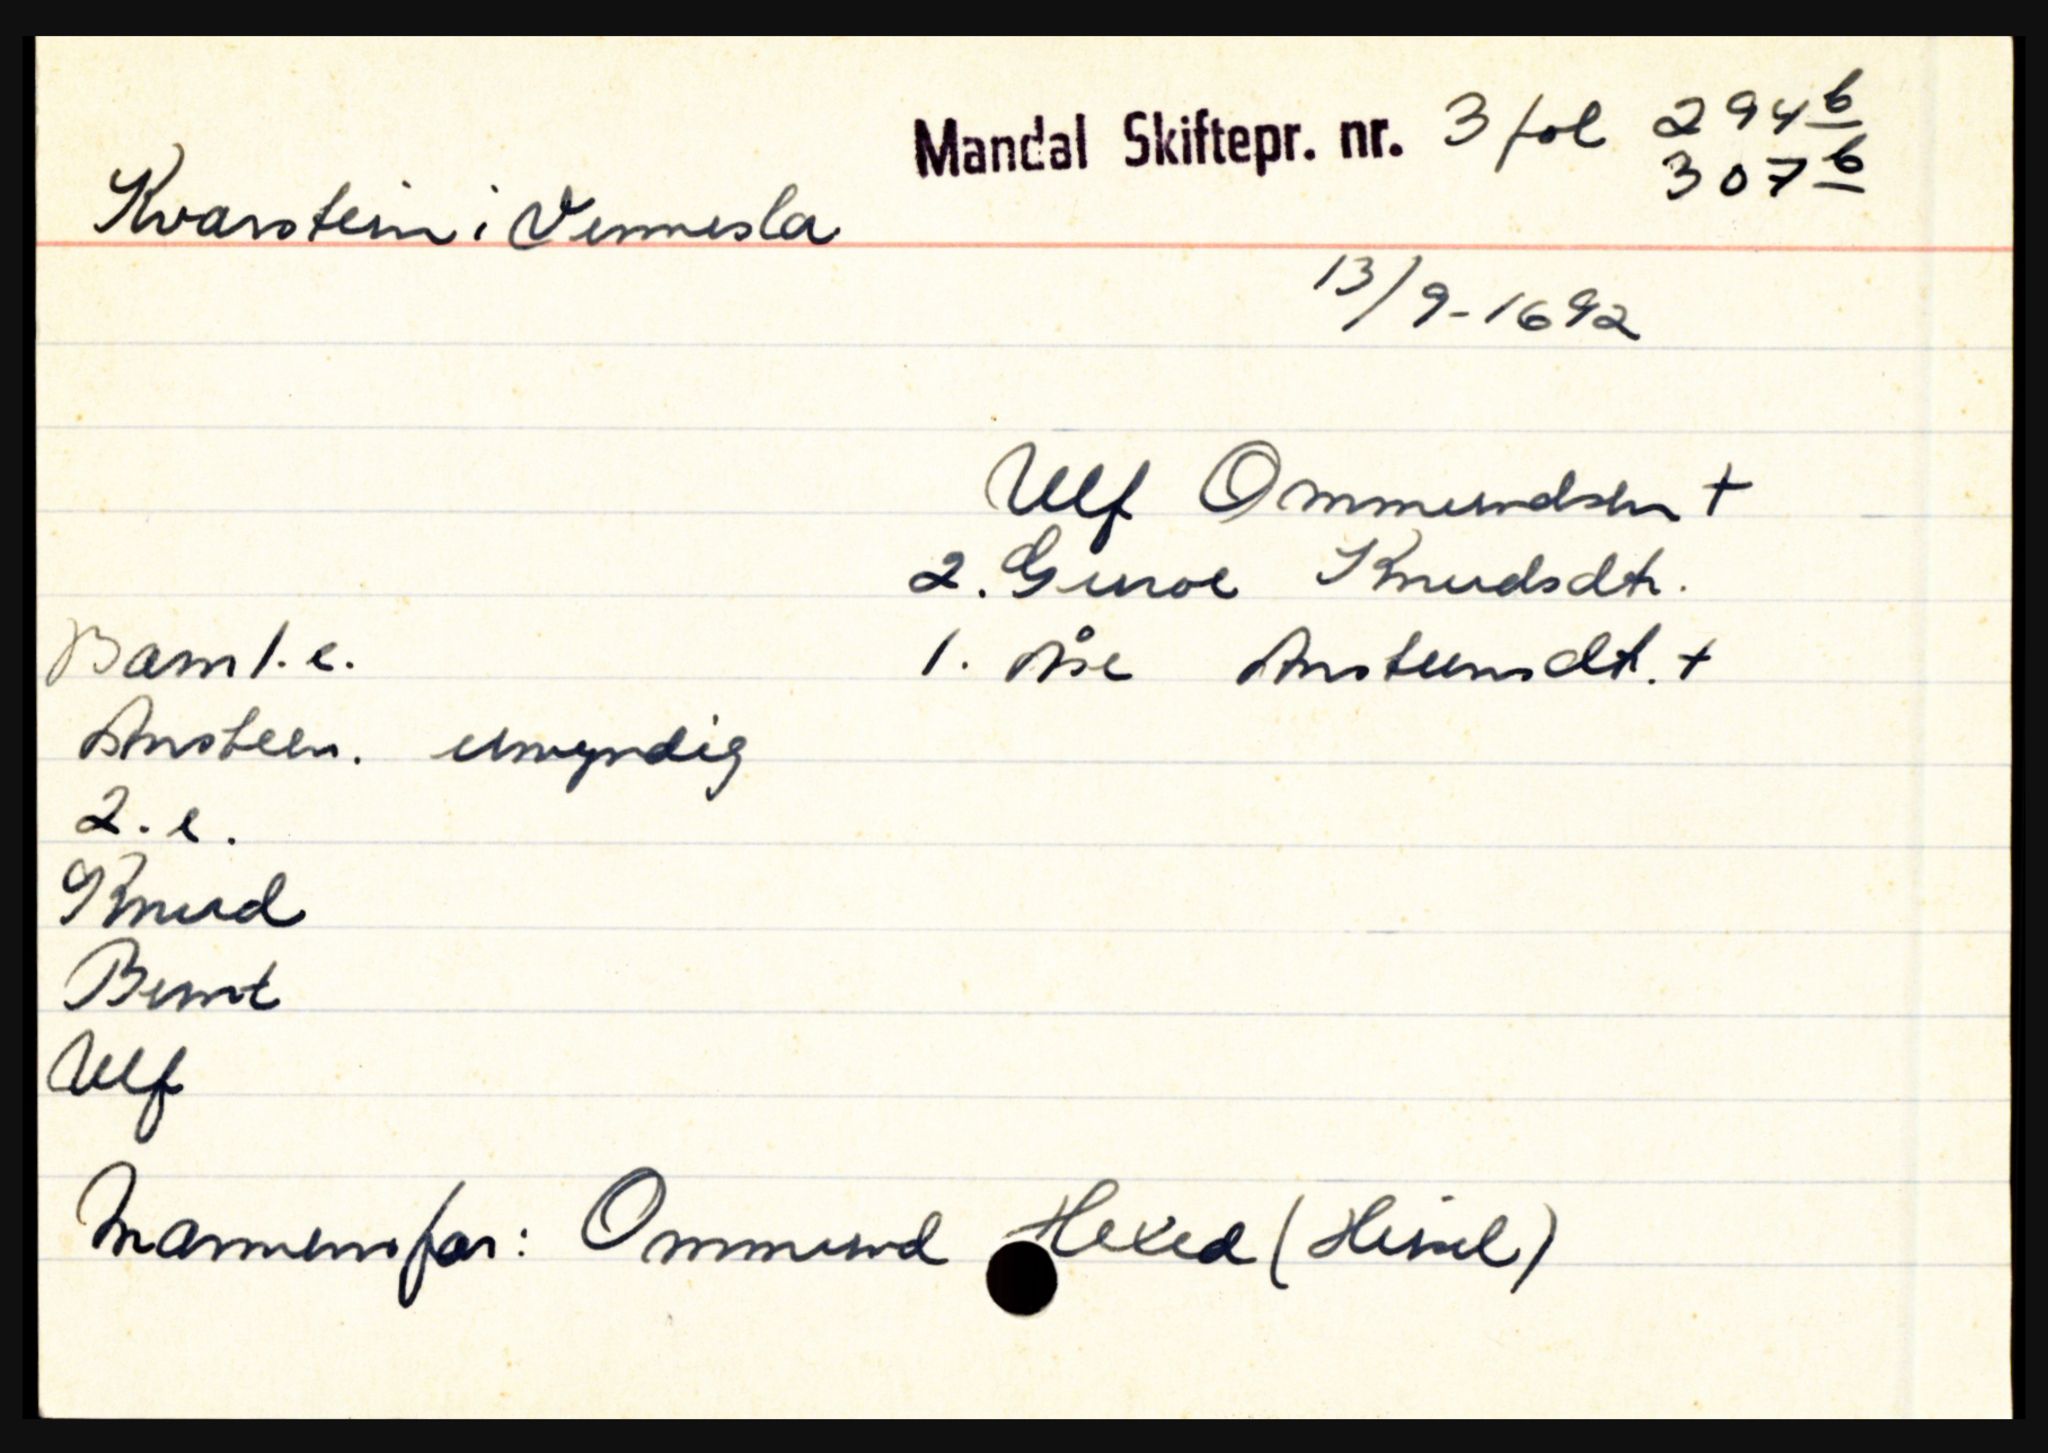 Mandal Skiftepr. nr. 3 fol 294 b
307 b
Kvarstein i Vennesla
13/9-1692
Ulf Ommundsen +
2. Guroe Knudsdtr.
Barn 1. e.
1. Åse Ansteensdtr. +
Ansteen. umyndig
2. e.
Knud
Bernt
Ulf
Mannens far: Ommund